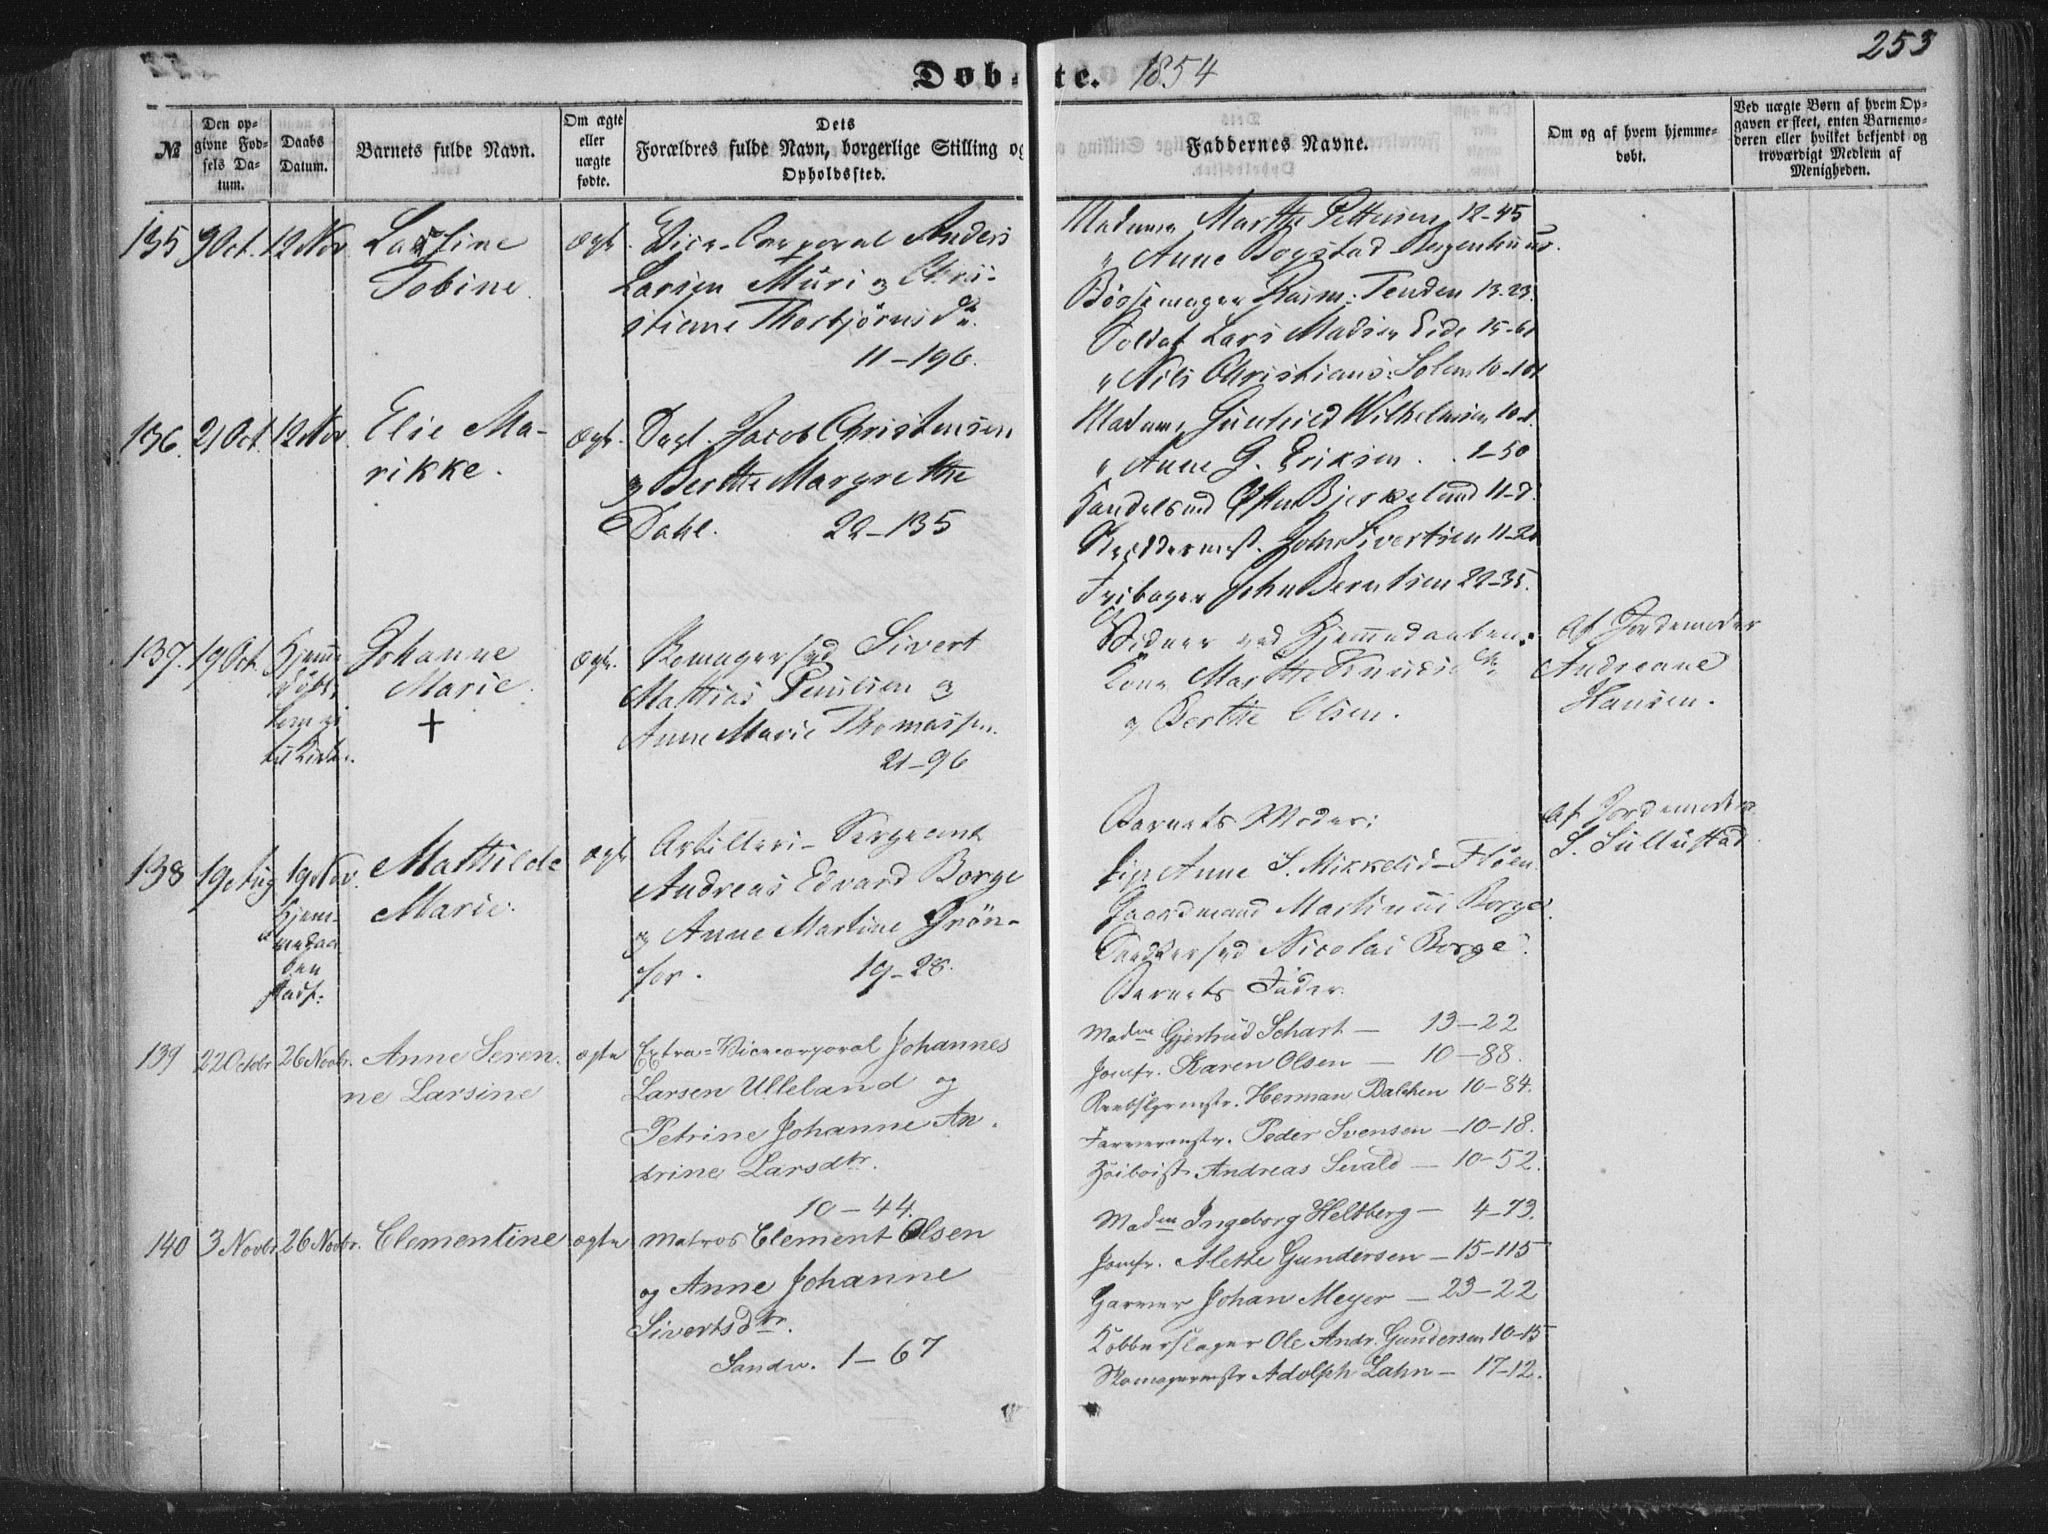 253
Døbte. 1854
№
Den opgivne Fødsels Datum.
Daabs Datum.
Barnets fulde Navn.
Om ægte eller uægte fødte.
Dets Forældres fulde Navn, borgerlige Stilling og Opholdssted.
Faddernes Navne.
Om og af hvem hjemmedøbt.
Ved uægte Børn af hvem Opgaven er skeet, enten Barnemoderen eller hvilket bekjendt og troværdigt Medlem af Menigheden.
135 9 Oct. 12 Nov Lastine
Tobine
ægt. Vice-Corporal Anders
Larsen Muri og Chri-
stiane Thorbjørnsd.
11-196.
Madame Marthe Pettersen 12-45
" Anne Bogstad
Bøssemager Rasm: Tenden 13-23.
Soldat Lars Madsen Eide 15-61
" Nils Christians: Solem 10-101
136. 21 Oct. 12 Nov. Elie Ma-
rikke.
ægt. Dagl. Jacob Christensen
og Berthe Margrethe
Dahl. 22-135
Madame Gunhild Wilhelmsen
" Anne G. Eriksen . . 1-50
Handelsmd Bjerkelund 11-7
Skræddermst. John Sivertsen 11-21
John Berntsen 22-35.
137. 19 Oct. Hjemme
døbt,
kom ei
til Kirken.
Johanne
Marie.
†
ægt. Skomagersvd Sivert
Mathias Poulsen og
Anne Marie Thomassen.
21-96
Vidner ved Hjemmedaaben:
Kone Marthe Knudsd.
og Berthe Olsen.
Af Jordemoder
Andreane
Hansen.
138 19 Aug 19 Nov.
Hjem-
medaa
ben
stadf:
Mathilde
Marie.
ægt. Artilleri-Sergeant
Andreas Edvard Borge
og Anne Martine Grøn-
for. 19-28.
Barnets Moder:
Pige Anne S. Mikkelsd-Fløen.
Gaardmand Martinus Borge.
Snedkersvd Nicolai Borge.
Barnets Fader.
Af Jordemoder
S. Sullustad
139 22 Octobr 26 Novbr. Anne Seren-
ne Larsine
ægte Extra-Vicecorporal Johannes
Larsen Ulleland og
Petrine Johanne An-
drine Larsdtr.
10-44.
Madm Gjertrud Schart — 13-22
Jomfr. Karen Olsen — 10-88.
Rebslgermstr. Herman Balchen 10-84.
Farvermstr. Peder Svensen — 10-18.
Hoiboist Andreas Sevald — 10-52.
140 3 Novbr 26 Novbr. Clementine ægte Matros Clement Olsen
og Anne Johanne
Sivertsdtr.
Sandv. 1-67
Madm Ingeborg Heltberg — 4-73.
Jomfr. Alette Gundersen — 15-115
Garver Johan Meyer — 23-22
Kobberslager Ole Andr. Gundersen 10-15
Skomagermstr Adolph Lahn — 17-12.